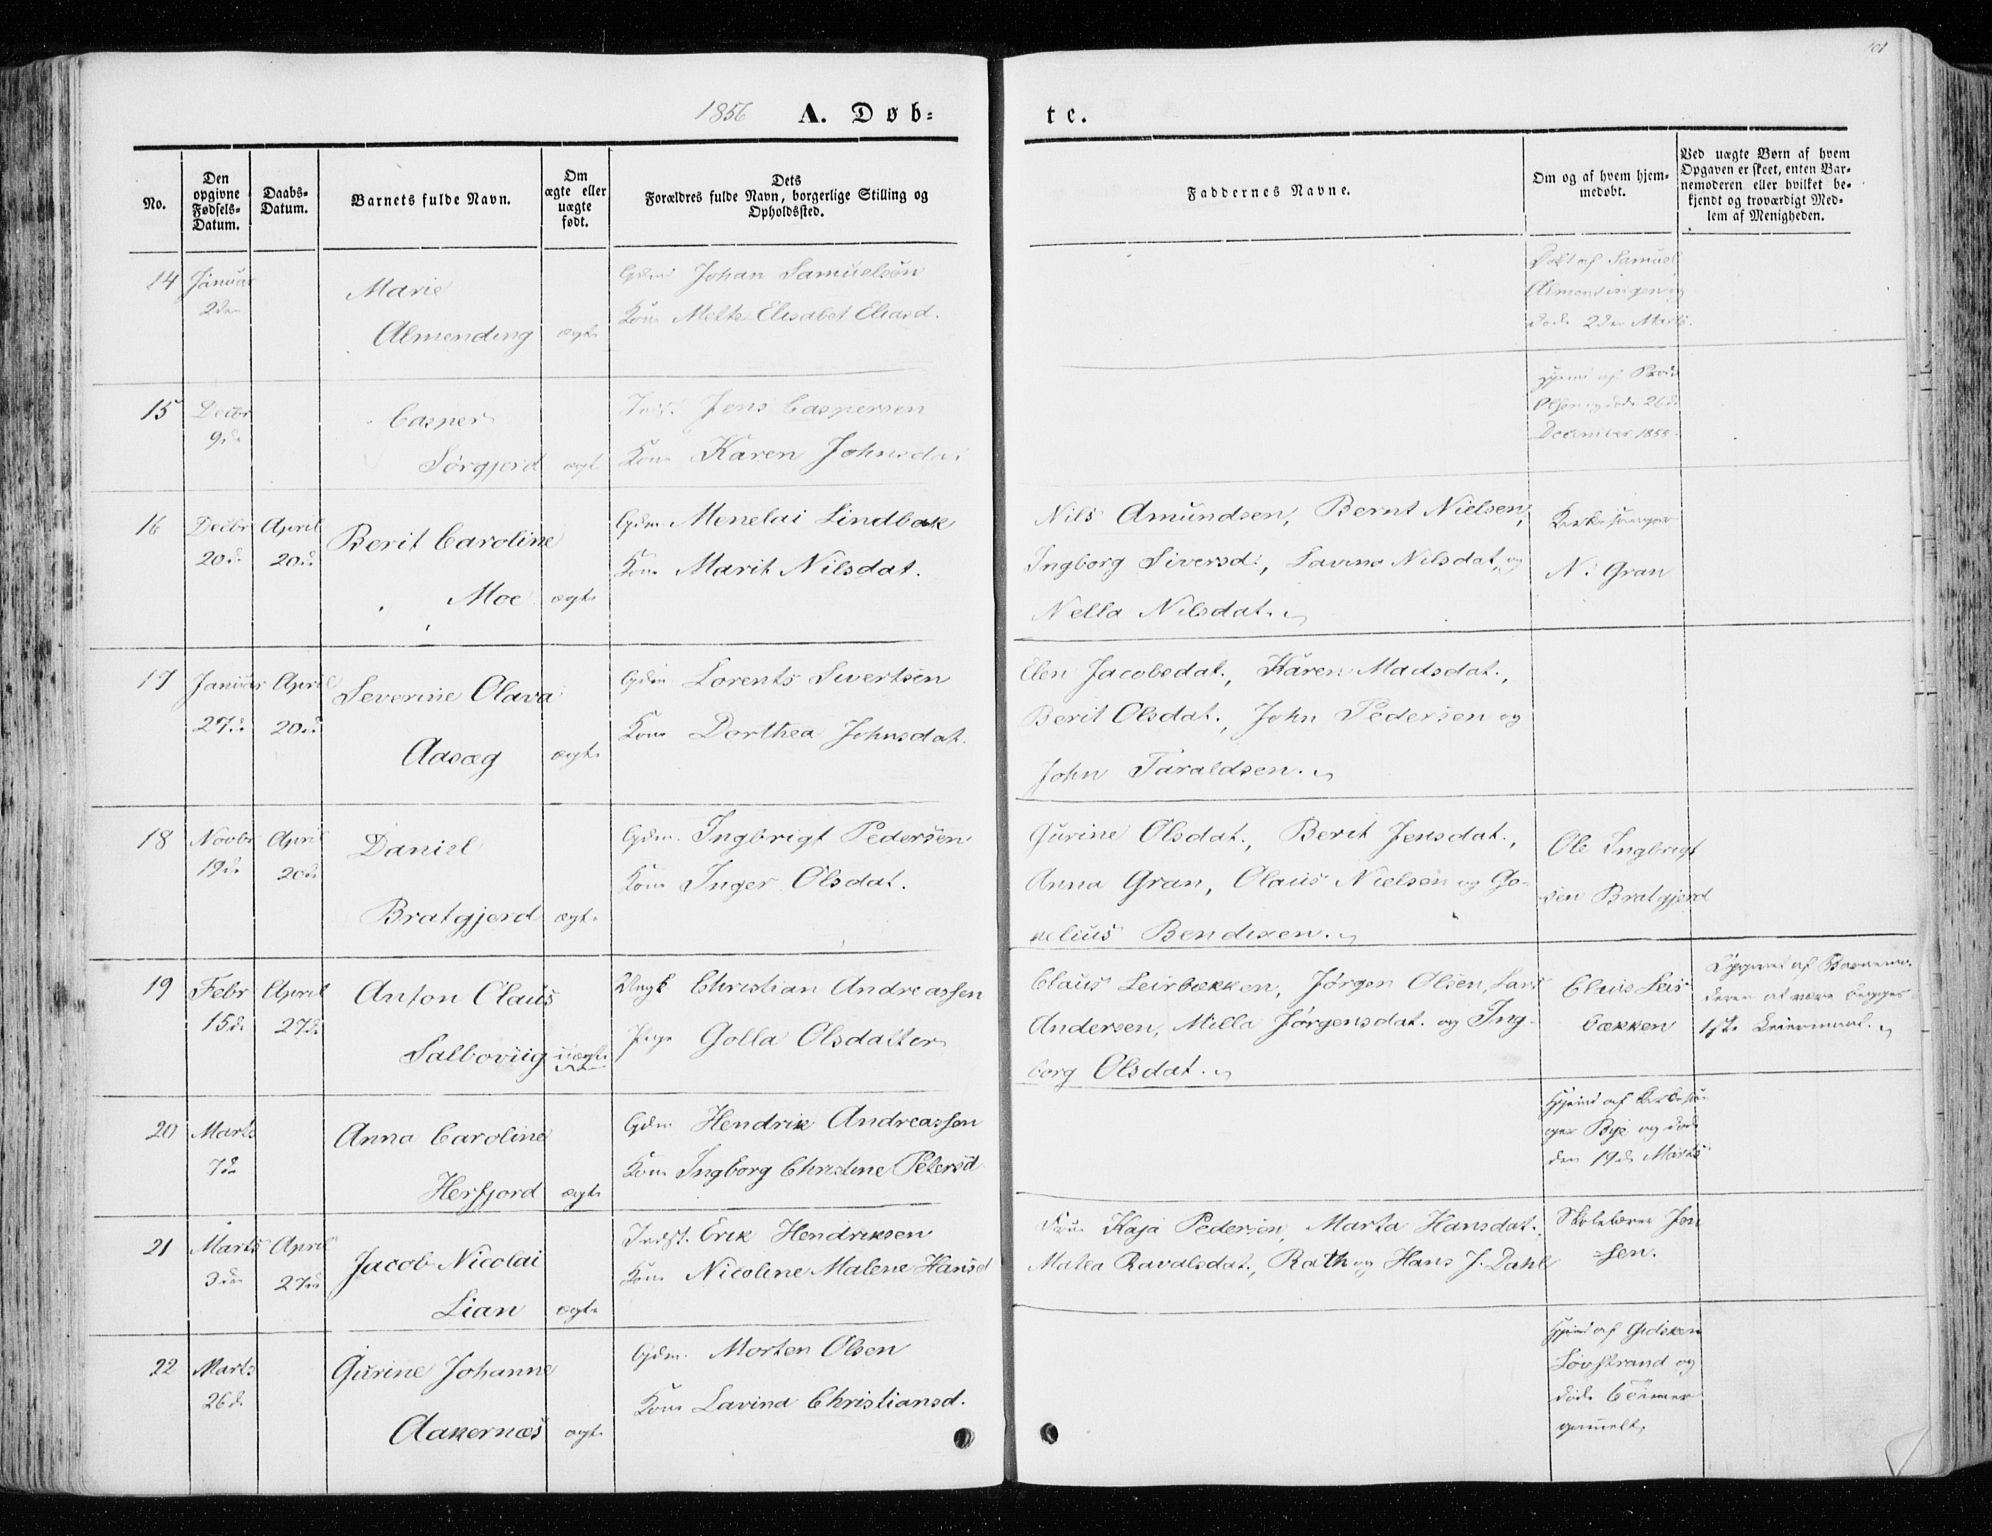 1856 A. Døb=
te.
101
No.
Den opgivne Fødsels-Datum.
Daabs-Datum.
Barnets fulde Navn.
Om ægte eller uægte født.
Dets Forældres fulde Navn, borgerlige Stilling og Opholdssted.
Faddernes Navne.
Om og af hvem hjem-medøbt.
Ved uægte Børn af hvem Opgaven er skeet, enten Bar-nemoderen eller hvilket be-kjendt og troværdigt Med-lem af Menigheden.
14 Januar 2den
Marie
Almending ægte
Gdm Johan Samuelsøn
Kone Melte Elisabet Eliasd.
Døbt af Samuel
Almendingen og
døde 2den Marts.
15 Decbr 9de
Casper
Sørgjerd ægt
Indst. Jens Caspersen
Kone Karen Johnsda:
Hjemd af
Olsen og døde 26de
December 1855.
16 Decbr 20de April 20de
Berit Caroline
Moe ægte
Gdm Menelai Lindbak
Kone Marit Nilsdat.
Nils Amundsen, Bernt Nielsen,
Ingborg Siversd:, Lavina Nilsdat, og
Nella Nilsdat.
Kirkesanger
N: Gran
17 Januar 27de April 20de
Severine Olava
Aasæg ægte
Gdm Lorents Sivertsen
Kone Dorthea Johnsdat.
Elen Jacobsdat., Karen Madsdat.,
Berit Olsdat., John Pedersen og
John Taraldsen.
18 Novbr 19de April 20de
Daniel
Bratgjerd ægte
Gdm. Ingbrigt Pedersen
Kone Inger Olsdat.
Gurine Olsdat., Berit Jensdat.,
Anna Gran, Olaus Nielsen og Go-
nelius Bendixen.
Ole Ingbrigt
sen Bratgjerd
19 Febr 15de April 27de
Anton Claus
Salboviig uægte
Ungk Christian Andreassen
Pige Golla Olsdatter
Claus Leirbækken, Jørgen Olsen, Lars
Andersen, Milla Jørgensdat. og Ing-
borg Olsdat.
Claus Leir
bækken
Opgivet af Barnemo-
deren at være begges
1ste Leiermaal.
20 Marts 7de
Anna Caroline
Herfjord ægte
Gdm Hendrik Andreassen
Kone Ingborg Christine Petersd
Hjemd af Kirkesan
ger Bye og døde
den 19de Marts
21 Marts 3den April 27de
Jacob Nicolai
Lian ægte
Indst. Erik Hendriksen
Kone Nicoline Malene Hansd
Fru Kaja Pedersen, Marta Hansdat.,
Matea Ravalsdat., Rath og Hans J. Dahl
Skolelærer Jen
sen.
22 Marts 26de
Gurine Johanne
Aakernæs ægte
Gdm. Morten Olsen
Kone Lavina Christiansd.
Hjemd af Gidsken
Løvstrand og
døde 6
gammelt.